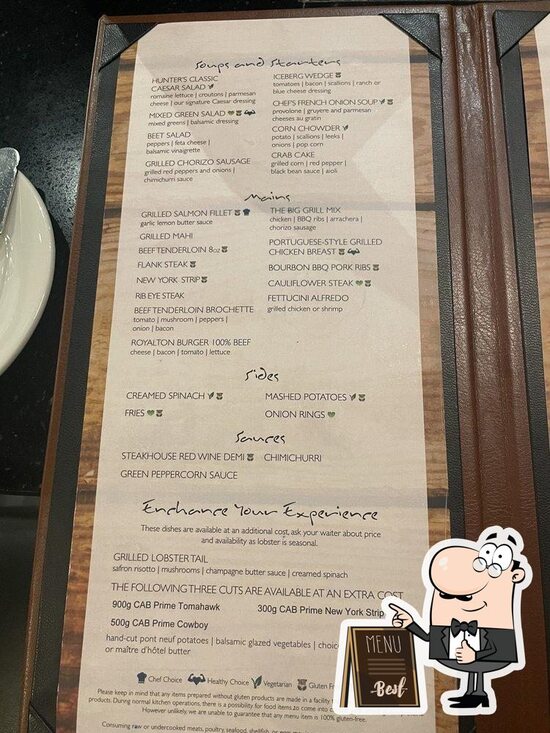 Soups and Starters
HUNTER'S CLASSIC
CAESAR SALAD
romaine lettuce | croutons | parmesan
cheese | our signature Caesar dressing
MIXED GREEN SALAD
mixed greens | balsamic dressing
BEET SALAD
peppers | feta cheese |
balsamic vinaigrette
GRILLED CHORIZO SAUSAGE
grilled red peppers and onions |
chimichurri sauce
ICEBERG WEDGE
tomatoes | bacon | scallions | ranch or
blue cheese dressing
CHEF'S FRENCH ONION SOUP
provolone | gruyere and parmesan
cheeses au gratin
CORN CHOWDER
potato | scallions | leeks |
onions | pop corn
CRAB CAKE
grilled corn | red pepper |
black bean sauce | aioli
Mains
GRILLED SALMON FILLET
garlic lemon butter sauce
GRILLED MAHI
BEEF TENDERLOIN 8oz
FLANK STEAK
NEW YORK STRIP
RIB EYE STEAK
BEEF TENDERLOIN BROCHETTE
tomato | mushroom | peppers |
onion | bacon
ROYALTON BURGER 100% BEEF
cheese | bacon | tomato | lettuce
THE BIG GRILL MIX
chicken | BBQ ribs | arrachera |
chorizo sausage
PORTUGUESE-STYLE GRILLED
CHICKEN BREAST
BOURBON BBQ PORK RIBS
CAULIFLOWER STEAK
FETTUCINI ALFREDO
grilled chicken or shrimp
Sides
CREAMED SPINACH
FRIES
MASHED POTATOES
ONION RINGS
Sauces
STEAKHOUSE RED WINE DEMI
CHIMICHURRI
GREEN PEPPERCORN SAUCE
Enchance Your Experience
These dishes are available at an additional cost, ask your waiter about price
and availability as lobster is seasonal.
GRILLED LOBSTER TAIL
safron risotto | mushrooms | champagne butter sauce | creamed spinach
THE FOLLOWING THREE CUTS ARE AVAILABLE AT AN EXTRA COST
900g CAB Prime Tomahawk
300g CAB Prime New York Strip
500g CAB Prime Cowboy
hand-cut pont neuf potatoes | balsamic glazed vegetables | choice
or maître d'hôtel butter
Chef Choice
Healthy Choice
Vegetarian
Gluten
Please keep in mind that any items prepared without gluten products are made in a facility
products. During normal kitchen operations, there is a possibility for food items to come into
However unlikely, we are unable to guarantee that any menu item is 100% gluten-free.
Consuming raw or undercooked meats, poultry, seafood, shellfish, or
MENU
Best